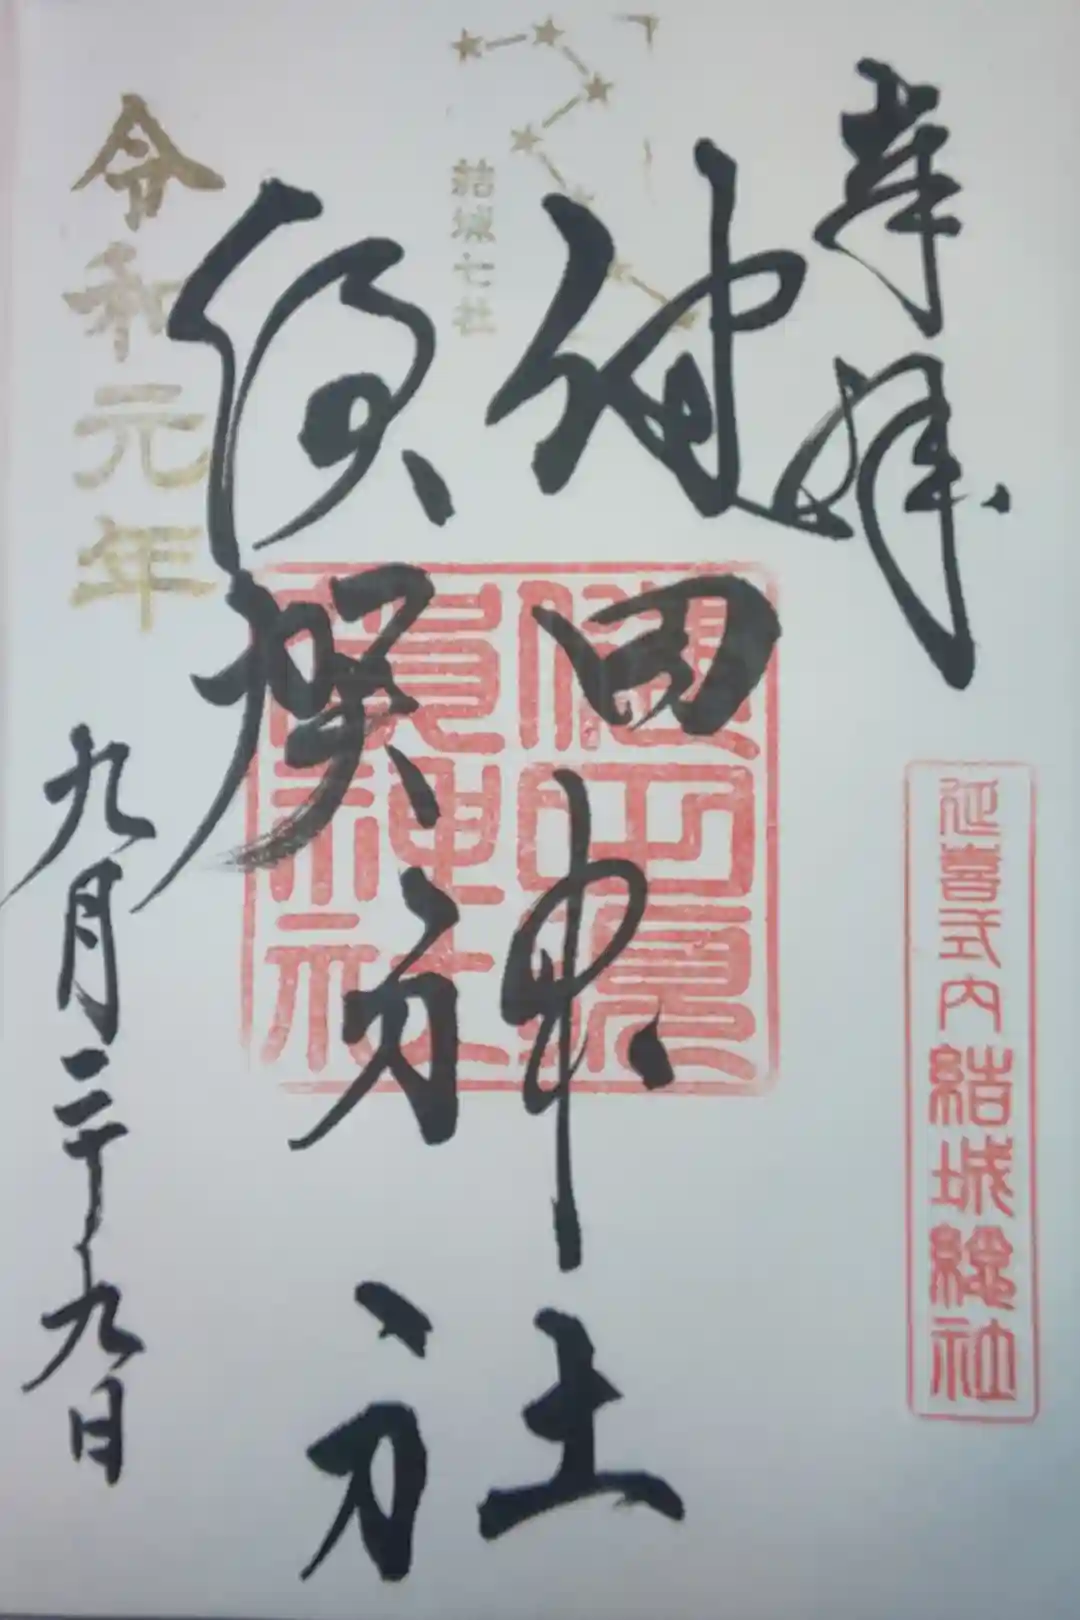 奉拝
延喜式内結城総社
結城七社
健田神社
須
健田須賀神社
令和元年
九月二十九日